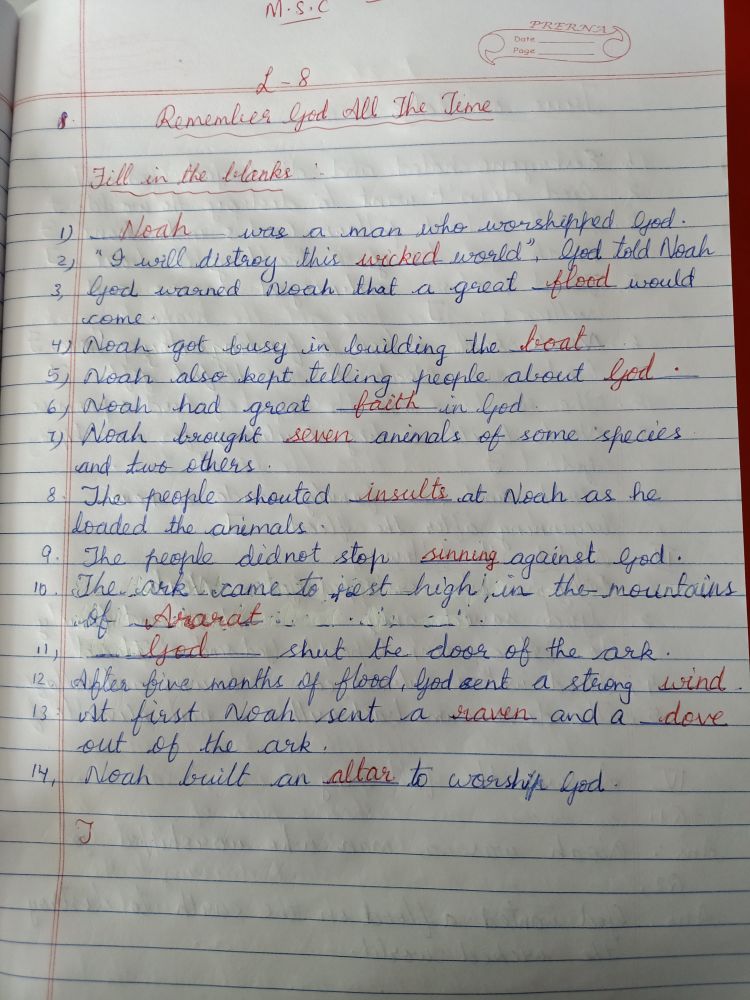 M.S.C
PRERNA
Date
Page
L-8
Remember God All The Time
Fill in the blanks :-
1) Noah was a man who worshipped God.
2) "I will distroy this wicked world", God told Noah
3, God warned Noah that a great flood would
come.
4) Noah got busy in building the boat
5) Noah also kept telling people about God.
6) Noah had great faith in God.
7) Noah brought seven animals of some species
and two others.
8. The people shouted insults at Noah as he
loaded the animals.
9. The people didnot stop sinning against God.
10. The ark came to rest high in the mountains
of Ararat
11, God shut the door of the ark.
12. After five months of flood, God sent a strong wind.
13. At first Noah sent a raven and a dove
out of the ark.
14, Noah built an altar to worship God.
I